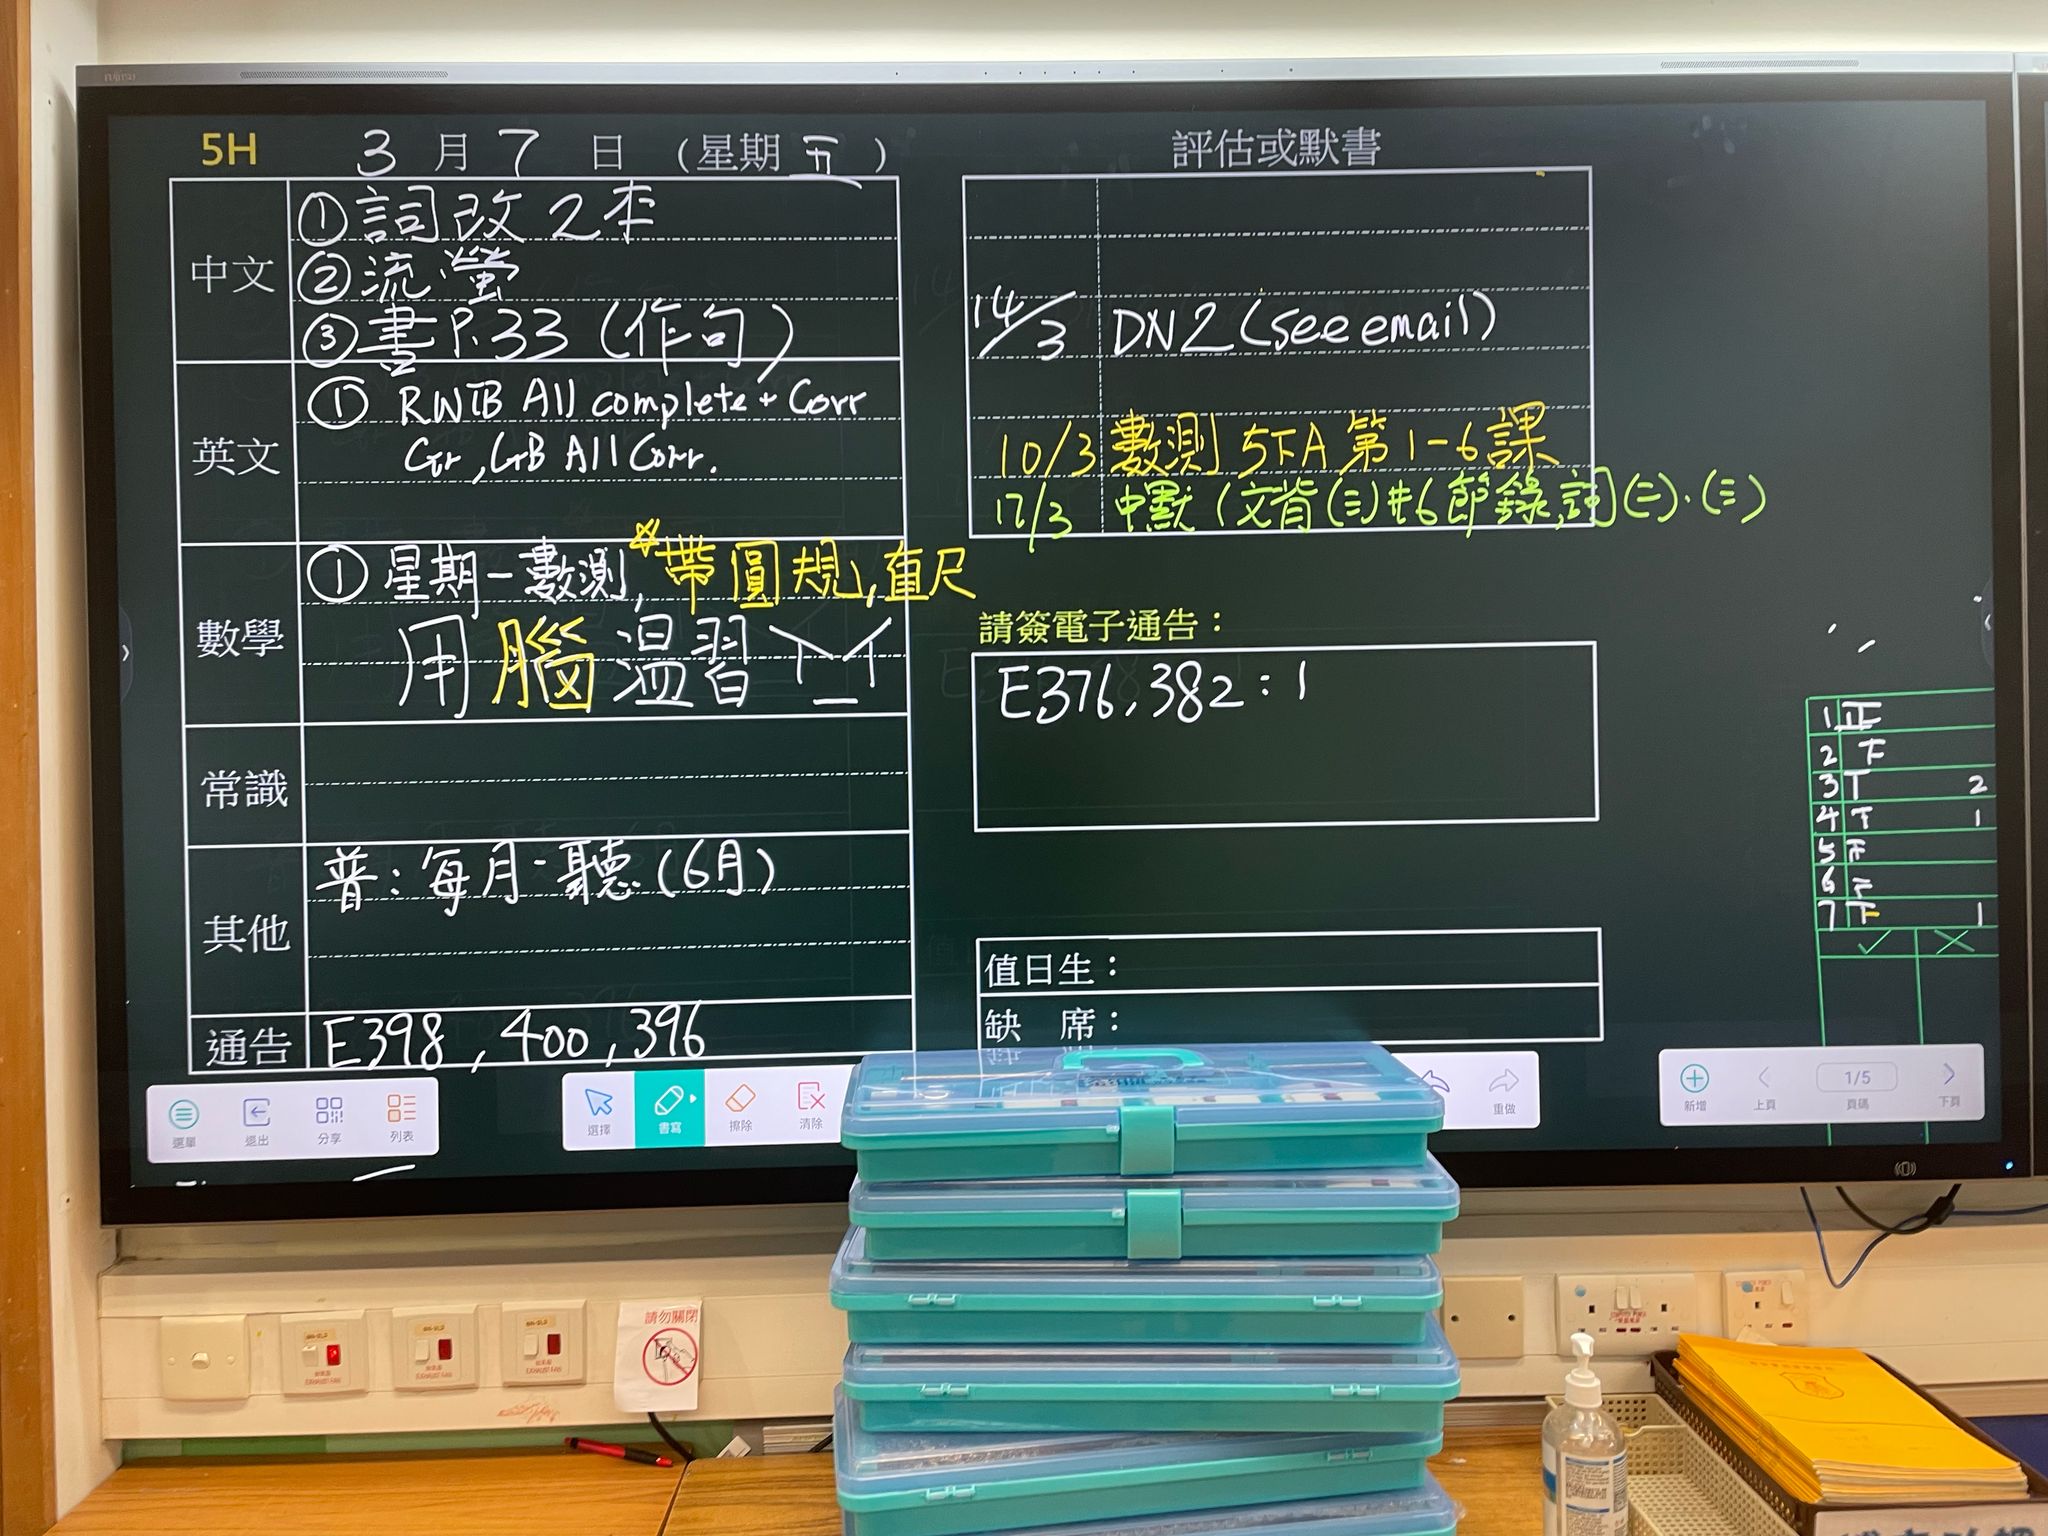 FUJITSU
5H 3月7日（星期五）
中文
①詞改2本
②流螢
③書P.33（作句）
英文
① RWTB All complete + Corr
Gr, GB All Corr.
數學
①星期一數測,*帶圓規,直尺
用腦溫習
常識
其他
普：每月一聽(6月)
通告
E398, 400, 396
評估或默書
14/3 DN2 (see email)
10/3 數測 5下A 第1-6課
17/3 中默（文背(三)#6節錄,詞(二)·(三)
請簽電子通告：
E376, 382 : 1
值日生：
缺 席：
1 正
2 下
3 丅 2
4 下 1
5
6
7 下 1
✓ ✕
選單 退出 分享 列表
選擇 書寫 擦除 清除
重做
新增 上頁 1/5 頁碼 下頁
請勿關閉